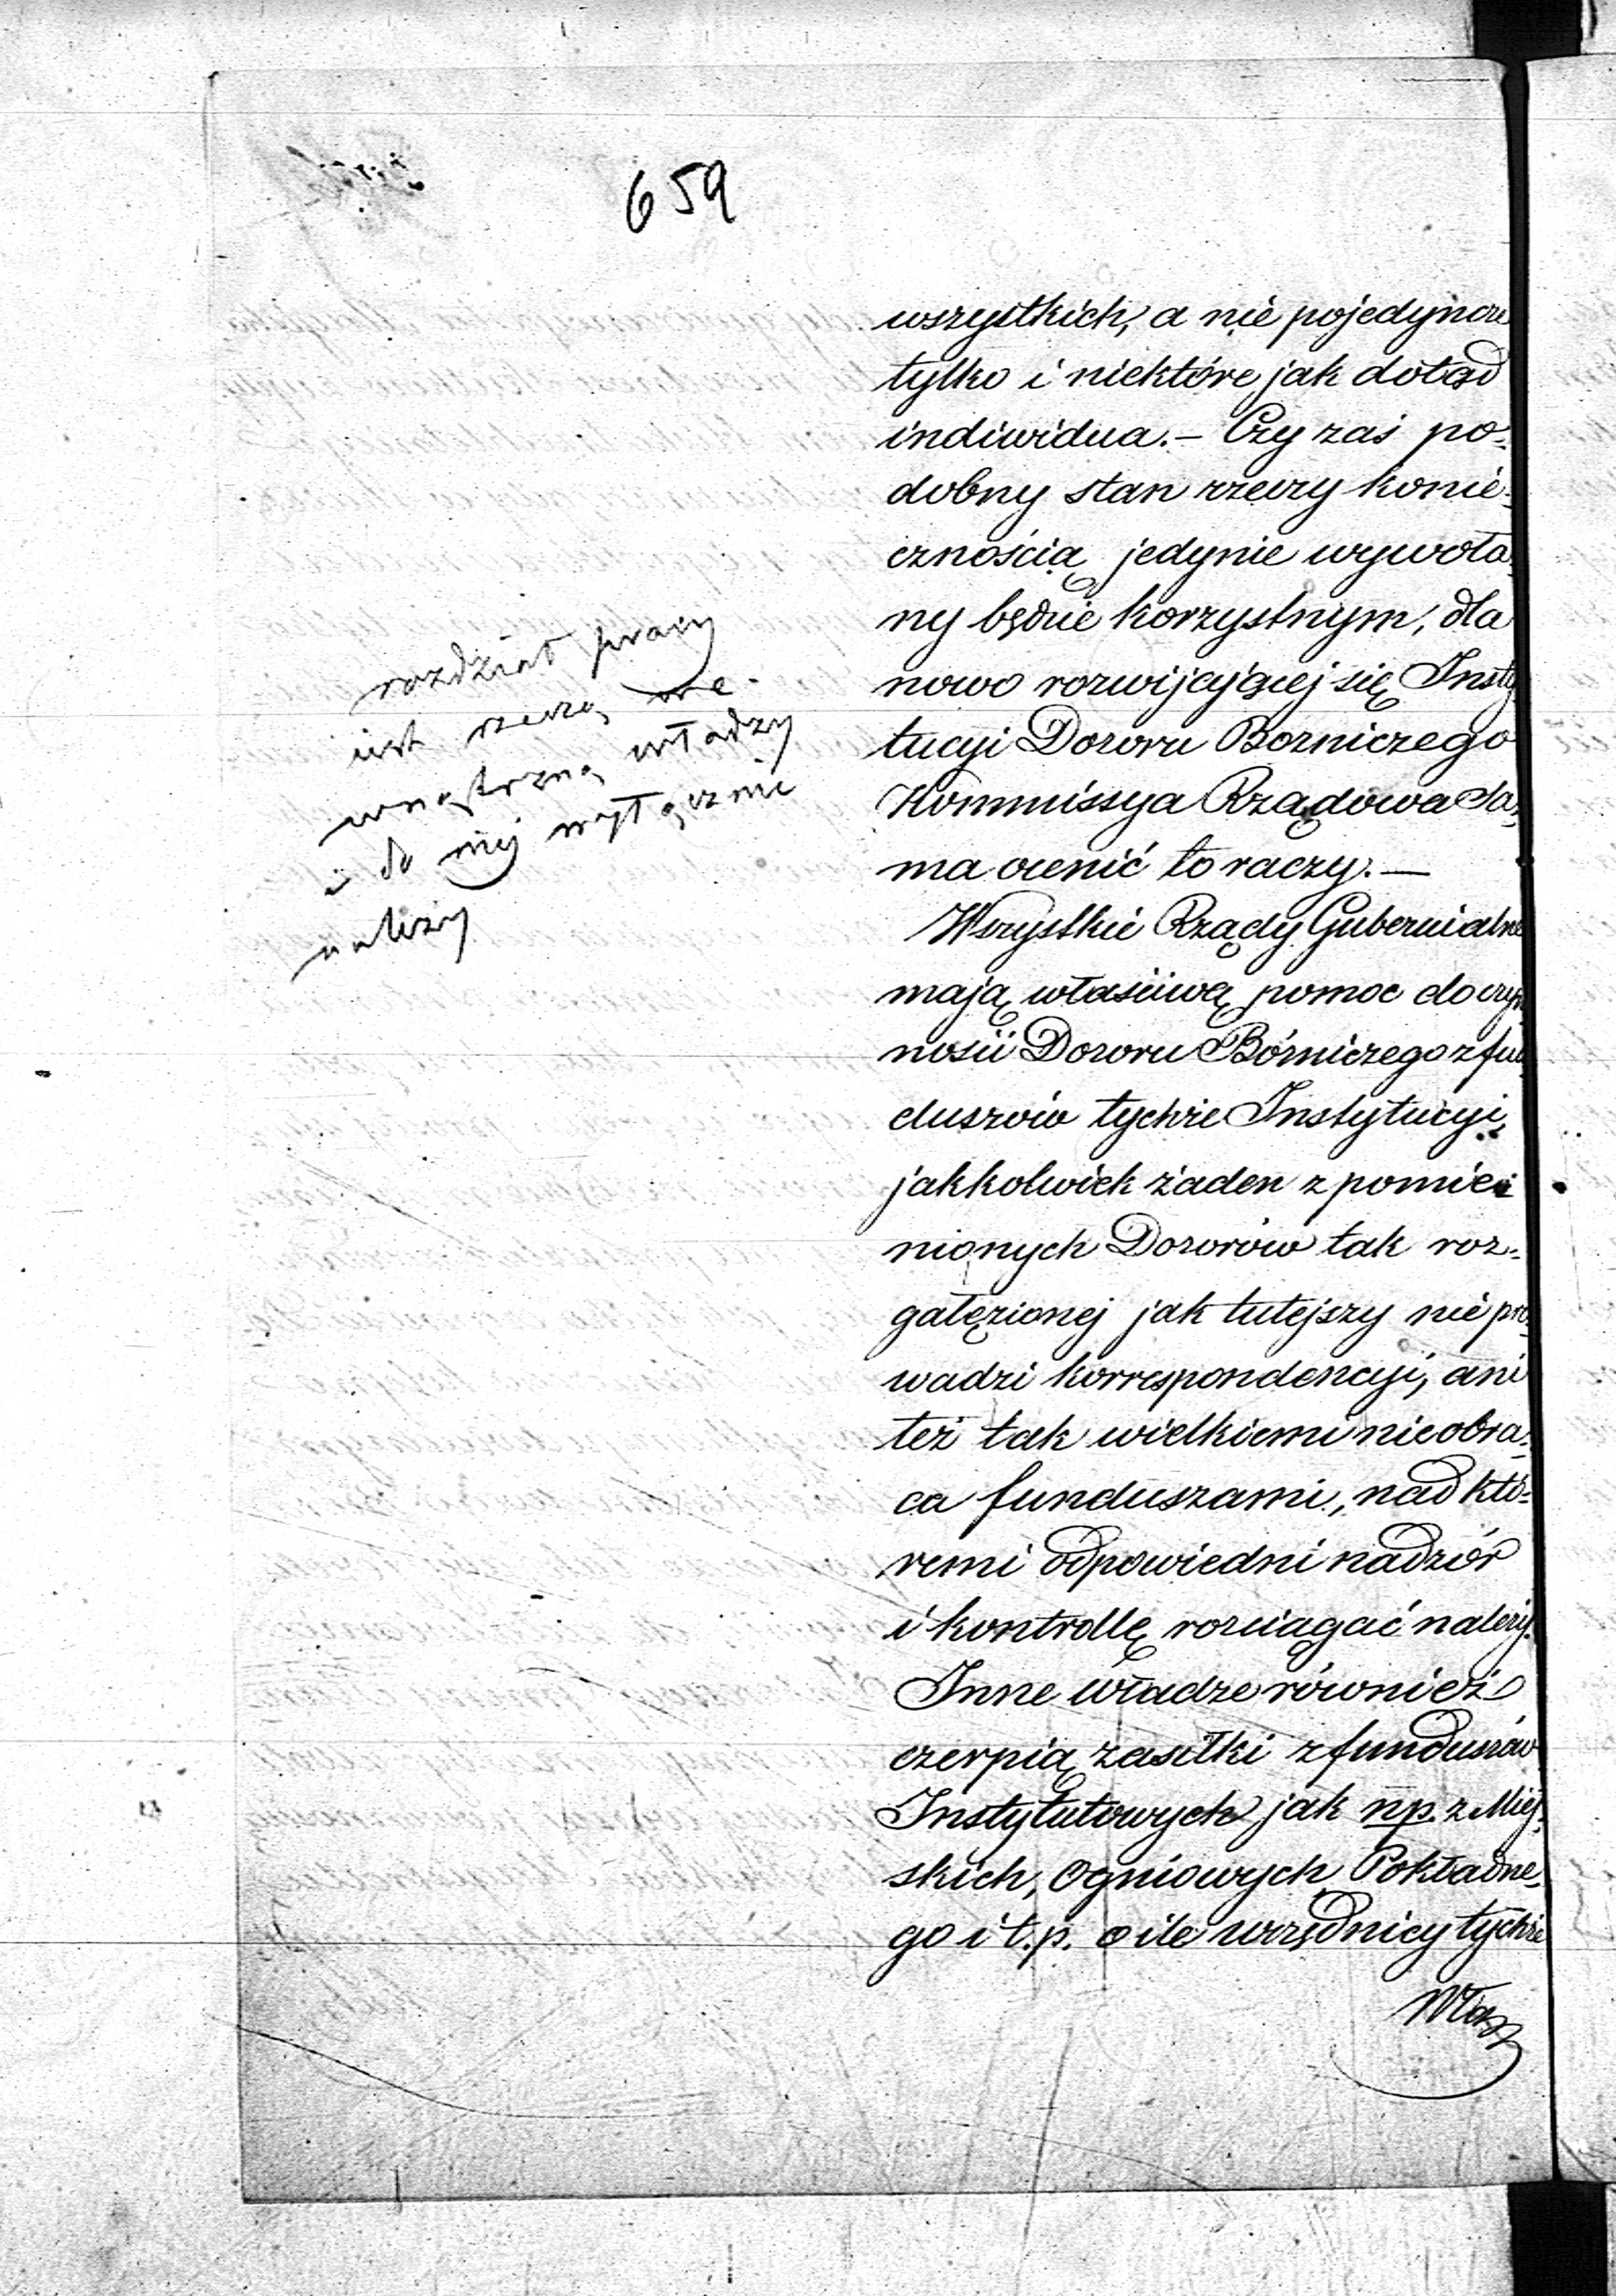 659
wszystkich, a nie pojedyncze
tylko i niektóre jak dotąd
indiwidua.– Czy zaś po-
dobny stan rzeczy konie-
cznością jedynie wywoła-
ny będzie korzystnym, dla
nowo rozwijającej się Insty-
tucyi Dozoru Bozniczego
Kommissya Rządowa Sa-
ma ocenić to raczy.—
Wszystkie Rządy Gubernialne
mają właściwą pomoc do czyn-
ności Dozoru Bóżniczego z fun-
duszów tychże Instytucyi,
jakkolwiek żaden z pomie-
nionych Dozorów tak roz-
gałęzionej jak tutejszy nie pro-
wadzi korrespondencyi, ani
też tak wielkiemi nie obra-
ca funduszami, nad któ-
remi odpowiedni nadzór
i kontrollę rozciągać należy.
Inne władze również
czerpią zasiłki z funduszów
Instytutowych jak np. z Miej-
skich, Ogniowych, Pokładne-
go i t.p. o ile urzędnicy tychże
Władz
rozdział pracy
jest rzeczą we-
wnętrzną władzy
i do niej wyłącznie
należy